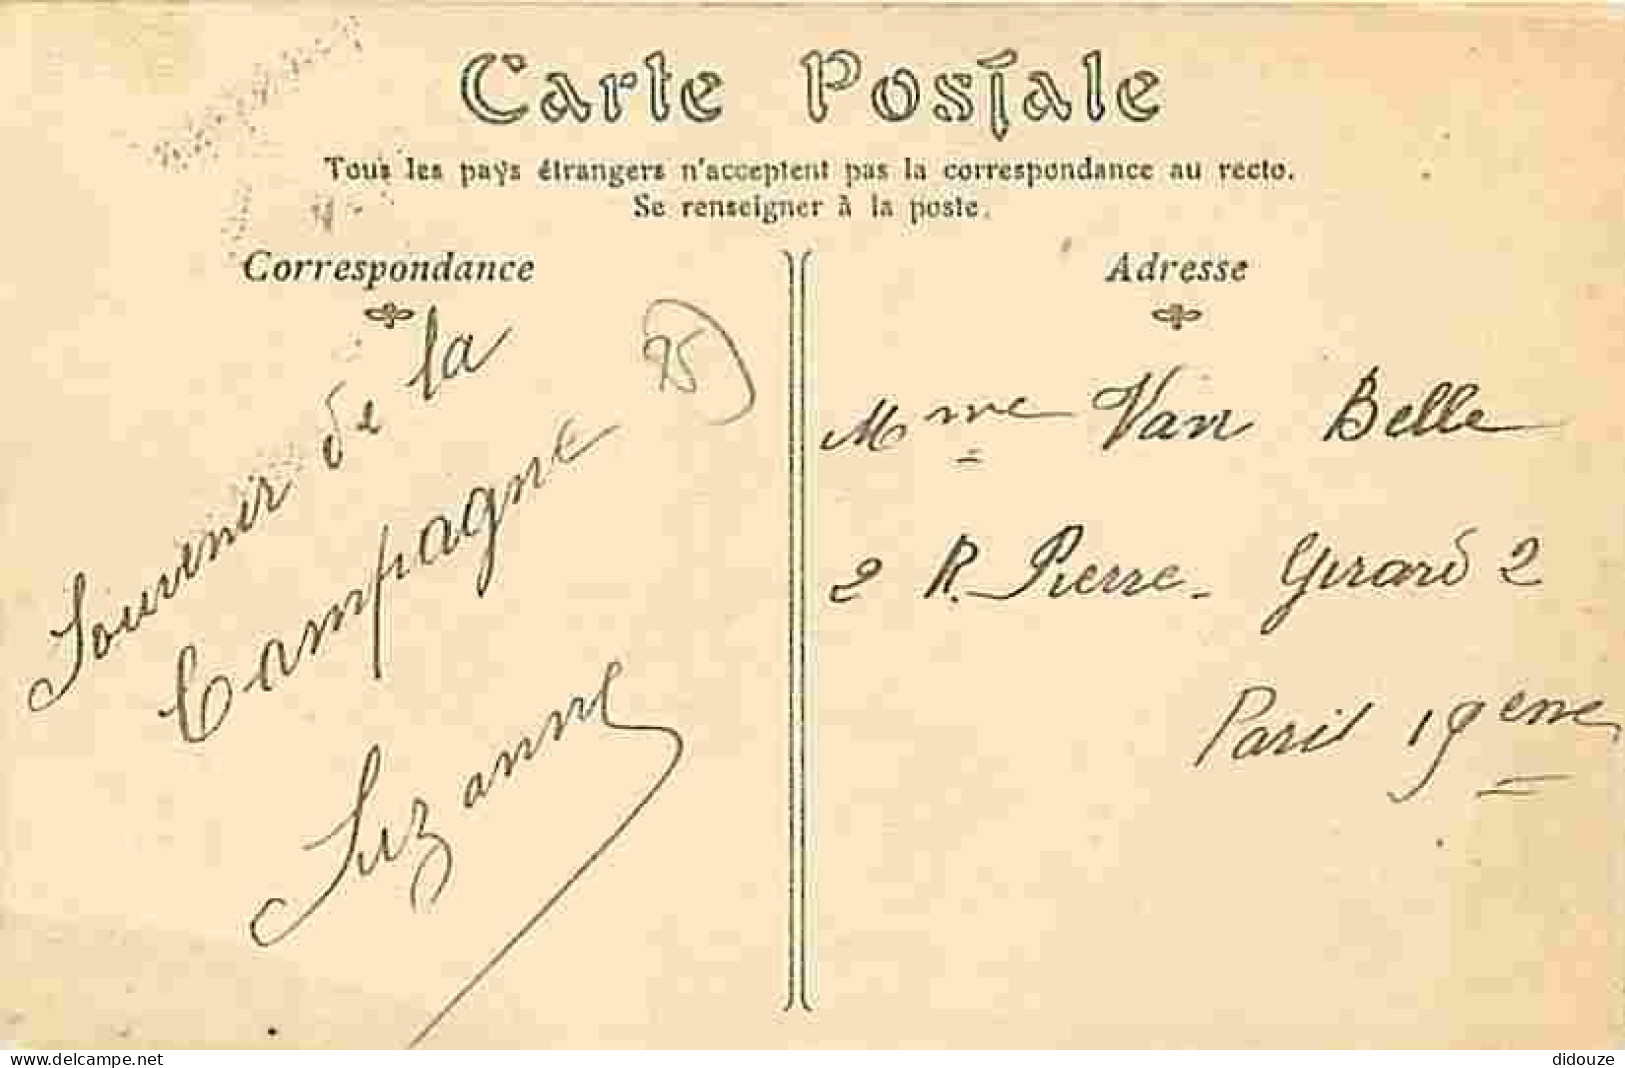 Carte Postale
Tous les pays étrangers n'acceptent pas la correspondance au recto.
Se renseigner à la poste.
Correspondance
Souvenir de la
Campagne
Suzanne
95
Adresse
Mme Van Belle
2 R. Pierre Girard 2
Paris 19eme
delcampe.net
didouze